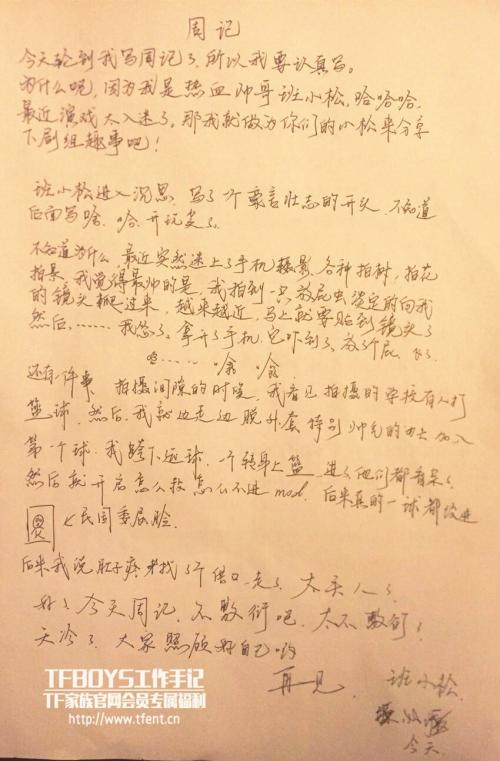 周记
今天轮到我写周记了,所以我要认真写。
为什么呢,因为我是热血帅哥班小松,哈哈哈,
最近演戏太入迷了。那我就做为你们的小松来分享
下剧组趣事吧!
班小松进入沉思,写了个豪言壮志的开头,不知道
后面写啥,哈,开玩笑了。
不知道为什么,最近突然迷上了手机摄影,各种拍树,拍花
拍景,我觉得最帅的是,我拍到一只放屁虫淡定的向我
的镜头爬过来,越来越近,马上就要贴到镜头了
然后,……我怂了。拿开了手机,它吓到了,放了个屁,飞了
还有一件事,拍摄间隙的时候,我看见拍摄的学校有人打
篮球,然后,我就边走边脱外套特别帅气的加入
第一个球,我胯下运球,一个转身上篮,进了他们都看呆了,
然后就开启怎么投怎么不进mod,后来真的一球都没进
<民国委屈脸
后来我说肚子疼找了个借口,走了,太丢人了
好了今天周记,不敷衍吧,太不敷衍了
天冷了,大家照顾好自己哟
再见
班小松
今天
TFBOYS工作手记
TF家族官网会员专属福利
http://www.tfent.cn